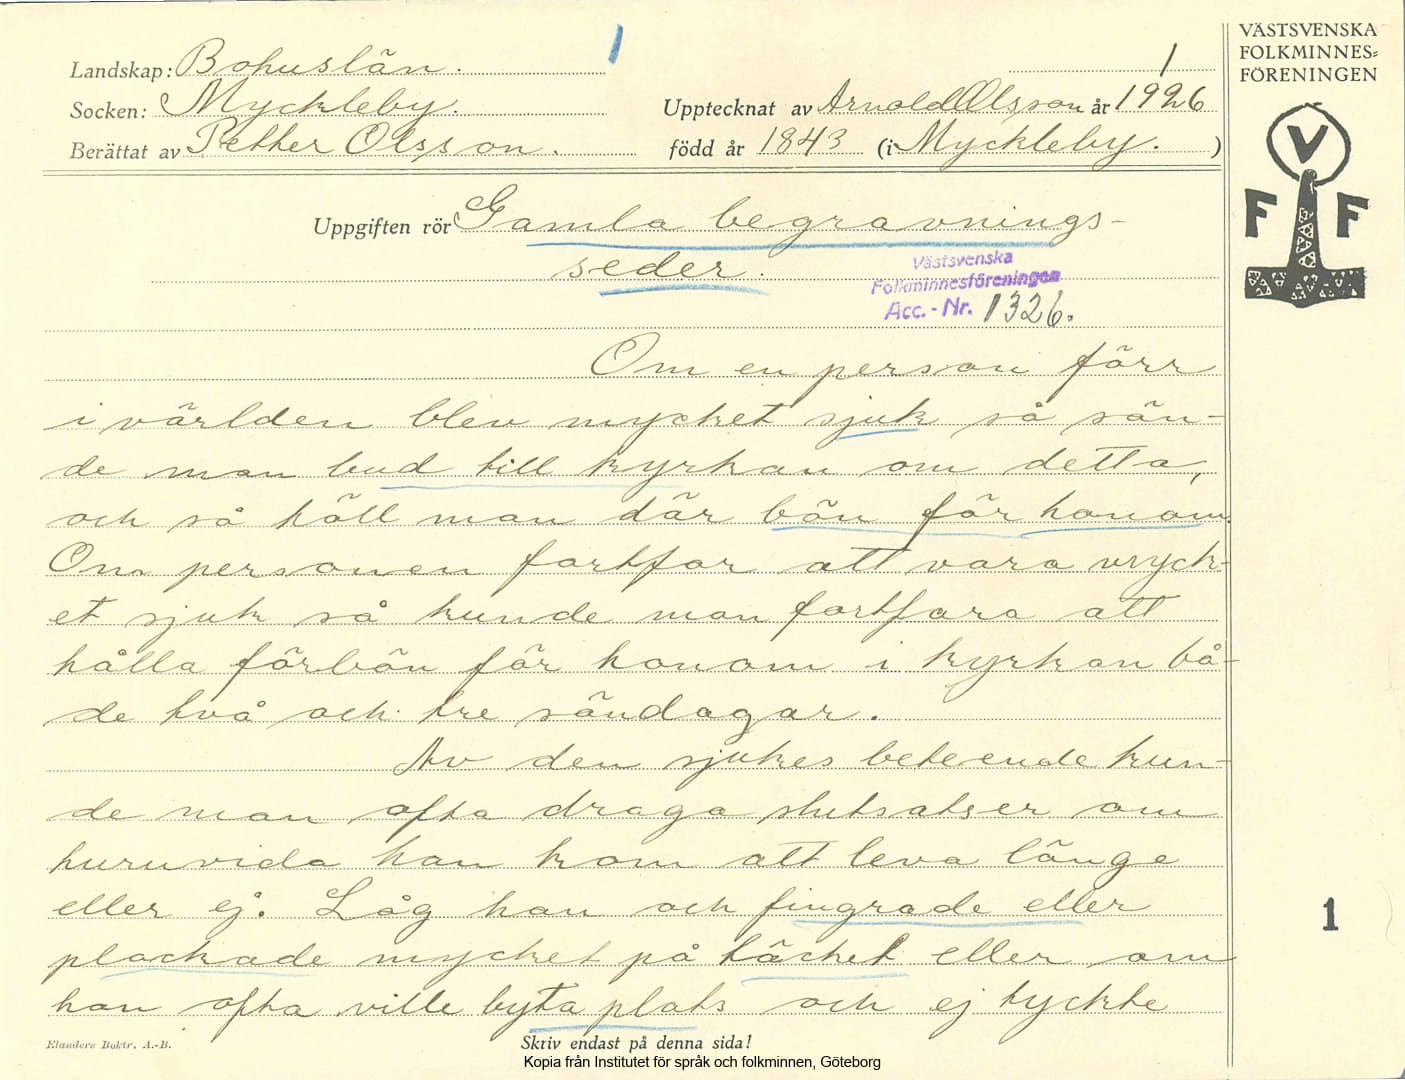 1
VÄSTSVENSKA
FOLKMINNES=
FÖRENINGEN
Landskap: Bohuslän.
1
Socken: Myckleby.
Upptecknat av Arnold Olsson år 1926
Berättat av Pether Olsson.
född år 1843 (i Myckleby.)
V
F F
Uppgiften rör Gamla begravnings-
seder.
Västsvenska
Folkminnesföreningen
Acc.-Nr. 1326.
Om en person förr
i världen blev mycket sjuk så sän-
de man bud till kyrkan om detta,
och så höll man där bön för honom.
Om personen fortfor att vara myck-
et sjuk så kunde man fortfara att
hålla förbön för honom i kyrkan bå-
de två och tre söndagar.
Av den sjukes beteende kun-
de man ofta draga slutsatser om
huruvida han kom att leva länge
eller ej. Låg han och fingrade eller
plockade mycket på täcket eller om
han ofta ville byta plats och ej tyckte
1
Elanders Boktr. A.-B.
Skriv endast på denna sida!
Kopia från Institutet för språk och folkminnen, Göteborg